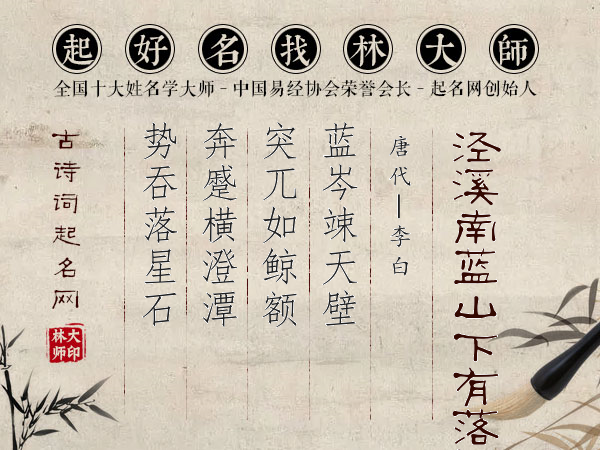 起好名找林大師
全国十大姓名学大师 - 中国易经协会荣誉会长 - 起名网创始人
泾溪南蓝山下有落
唐代—李白
蓝岑竦天壁
突兀如鲸额
奔蹙横澄潭
势吞落星石
古诗词起名网
大印
林师